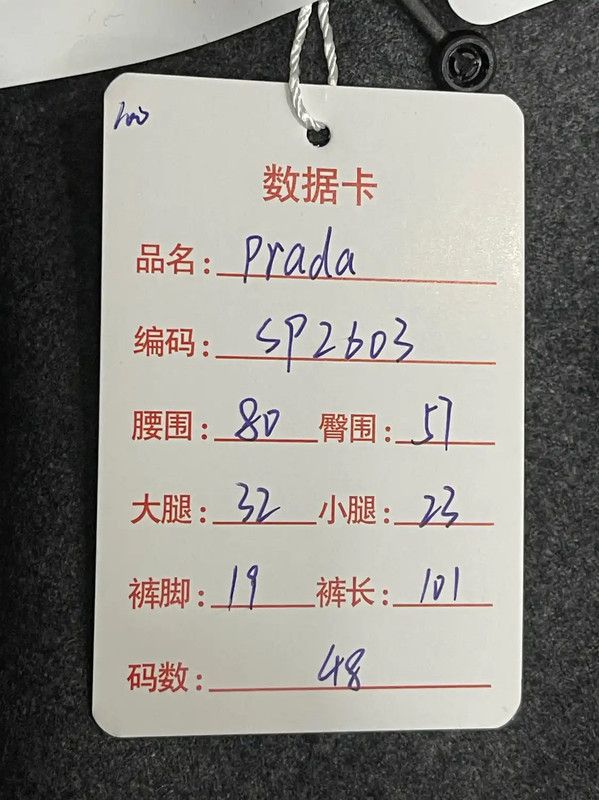 数据卡
品名: prada
编码: SP2603
腰围: 80 臀围: 57
大腿: 32 小腿: 23
裤脚: 19 裤长: 101
码数: 48